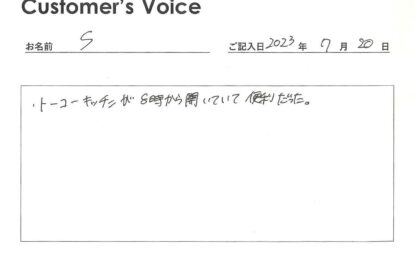 Customer's Voice
お名前 S ご記入日 2023 年 7 月 20 日
・トーコーキッチンが 8時から開いていて 便利だった。